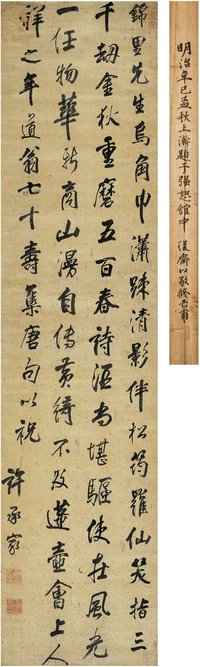 錦里先生烏角巾瀟疎清影伴松筠羅仙笑指三
千劫金狄重磨五百春詩酒尚堪驅使在風光
一任物華新商山漫自傳黃綺不及蓬壺會上人
祥之年道翁七十壽集唐句以祝
許承家
明治辛巳孟秋上澣題于強恕館中